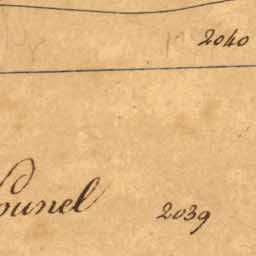 2040
ounel 2039